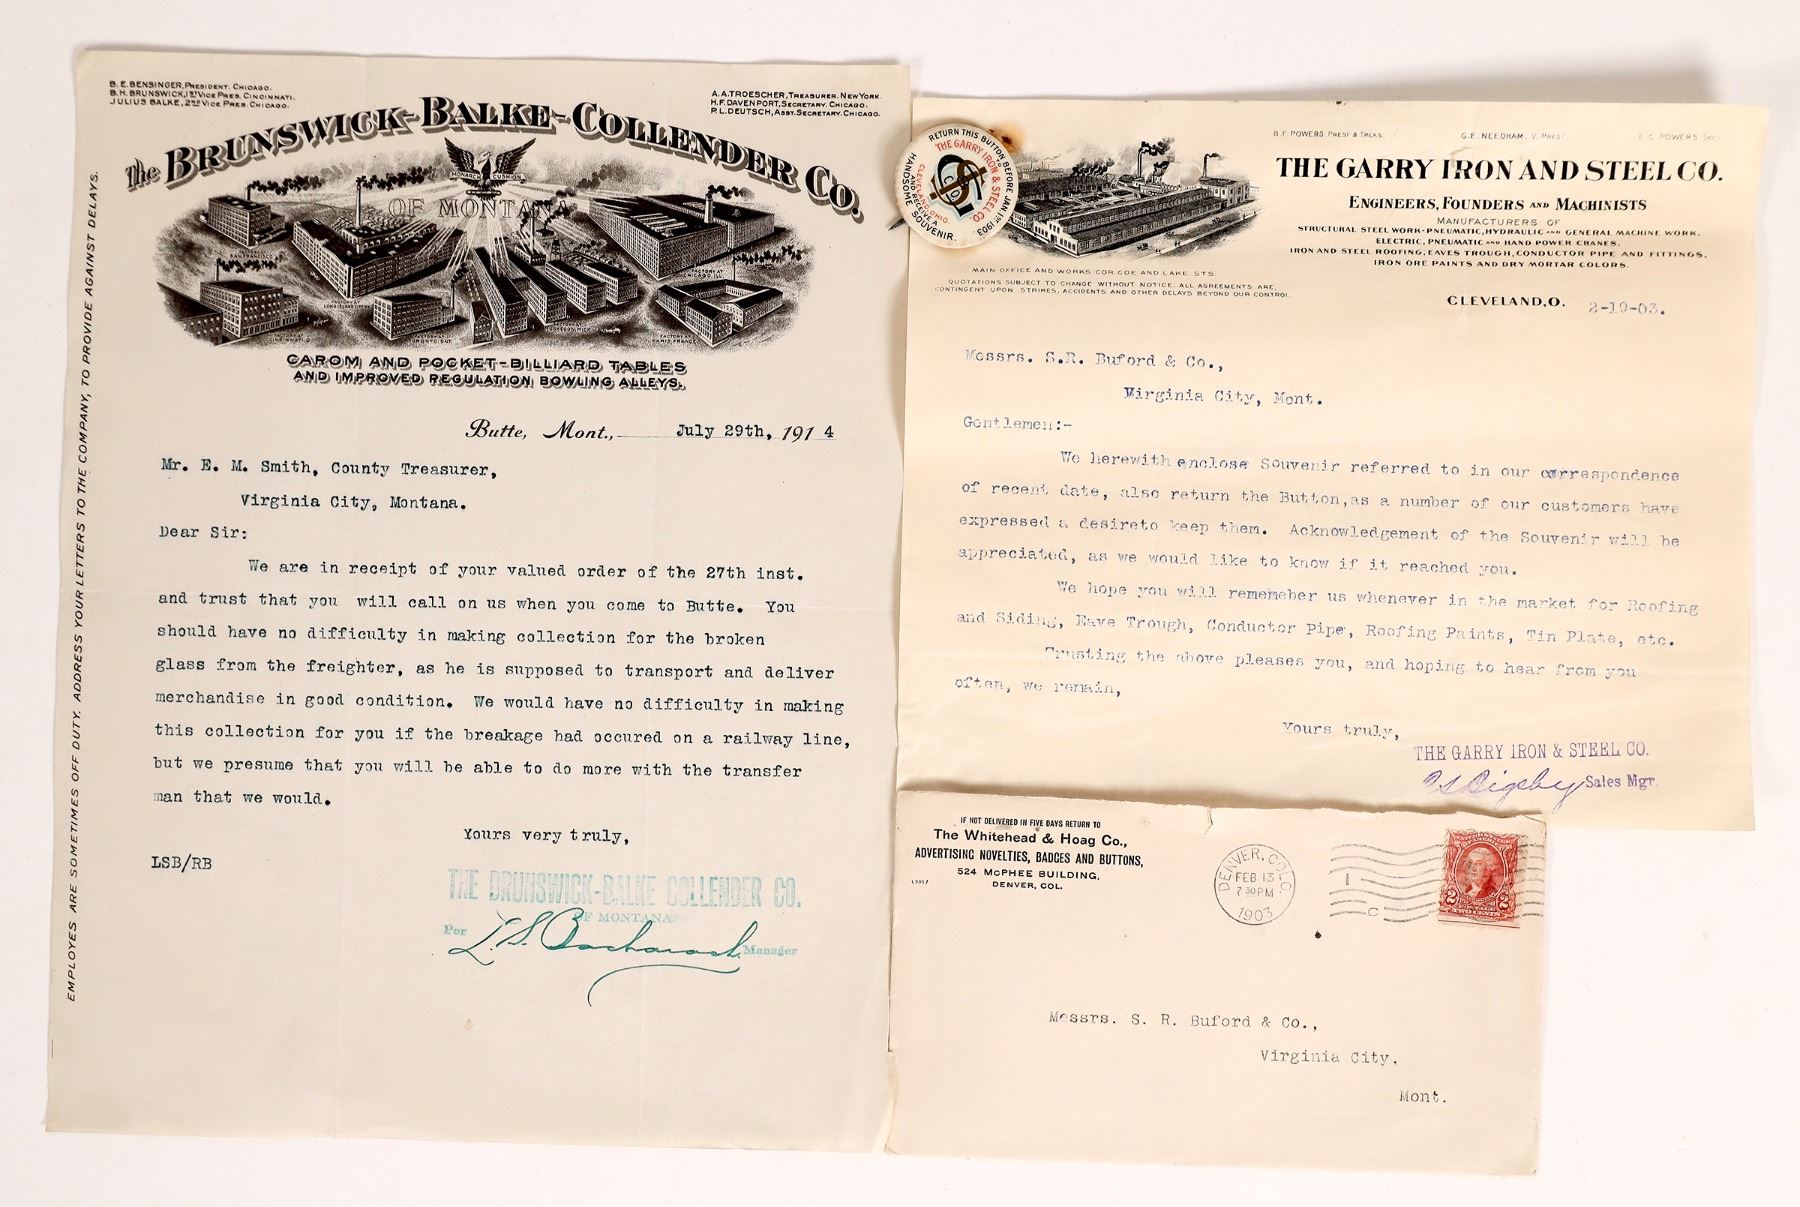 B. E. BENSINGER, PRESIDENT. CHICAGO.
B. H. BRUNSWICK, 1ST VICE PRES. CINCINNATI.
JULIUS BALKE, 2ND VICE PRES. CHICAGO.
A. A. TROESCHER, TREASURER. NEW YORK.
H. F. DAVENPORT, SECRETARY. CHICAGO.
P. L. DEUTSCH, ASST. SECRETARY. CHICAGO.
The BRUNSWICK-BALKE-COLLENDER CO.
MONARCH CUSHION
OF MONTANA
CAROM AND POCKET-BILLIARD TABLES
AND IMPROVED REGULATION BOWLING ALLEYS.
EMPLOYES ARE SOMETIMES OFF DUTY. ADDRESS YOUR LETTERS TO THE COMPANY, TO PROVIDE AGAINST DELAYS.
Butte, Mont., July 29th, 1914
Mr. E. M. Smith, County Treasurer,
Virginia City, Montana.
Dear Sir:
We are in receipt of your valued order of the 27th inst.
and trust that you will call on us when you come to Butte. You
should have no difficulty in making collection for the broken
glass from the freighter, as he is supposed to transport and deliver
merchandise in good condition. We would have no difficulty in making
this collection for you if the breakage had occured on a railway line,
but we presume that you will be able to do more with the transfer
man that we would.
Yours very truly,
LSB/RB
THE BRUNSWICK-BALKE COLLENDER CO.
OF MONTANA
Per L. S. Bacharach Manager
RETURN THIS BUTTON BEFORE JAN 1ST 1903.
AND RECEIVE A
HANDSOME SOUVENIR.
THE GARRY IRON & STEEL CO.
CLEVELAND, OHIO.
B. F. POWERS, PREST & TREAS.
G. E. NEEDHAM, V. PREST.
E. C. POWERS, SECY.
THE GARRY IRON AND STEEL CO.
ENGINEERS, FOUNDERS AND MACHINISTS
MANUFACTURERS OF
STRUCTURAL STEEL WORK-PNEUMATIC, HYDRAULIC AND GENERAL MACHINE WORK.
ELECTRIC, PNEUMATIC AND HAND POWER CRANES.
IRON AND STEEL ROOFING, EAVES TROUGH, CONDUCTOR PIPE AND FITTINGS.
IRON ORE PAINTS AND DRY MORTAR COLORS.
MAIN OFFICE AND WORKS COR. COE AND LAKE STS.
QUOTATIONS SUBJECT TO CHANGE WITHOUT NOTICE. ALL AGREEMENTS ARE
CONTINGENT UPON STRIKES, ACCIDENTS AND OTHER DELAYS BEYOND OUR CONTROL.
CLEVELAND, O. 2-19-03.
Messrs. S.R. Buford & Co.,
Virginia City, Mont.
Gentlemen:-
We herewith enclose Souvenir referred to in our correspondence
of recent date, also return the Button,as a number of our customers have
expressed a desireto keep them. Acknowledgement of the Souvenir will be
appreciated, as we would like to know if it reached you.
We hope you will rememeber us whenever in the market for Roofing
and Siding, Eave Trough, Conductor Pipe, Roofing Paints, Tin Plate, etc.
Trusting the above pleases you, and hoping to hear from you
often, we remain,
Yours truly,
THE GARRY IRON & STEEL CO.
Bigsby Sales Mgr.
IF NOT DELIVERED IN FIVE DAYS RETURN TO
The Whitehead & Hoag Co.,
ADVERTISING NOVELTIES, BADGES AND BUTTONS,
524 McPHEE BUILDING,
DENVER, COL.
DENVER, COLO.
FEB 13
7 30 PM
1903
1
C
2 2
TWO CENTS
Messrs. S. R. Buford & Co.,
Virginia City,
Mont.